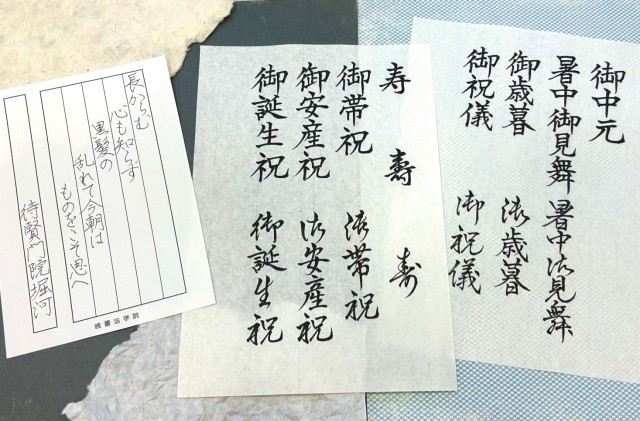 御中元
暑中御見舞 暑中御見舞
御歳暮 御歳暮
御祝儀 御祝儀
寿 寿 寿
御帯祝 御帯祝
御安産祝 御安産祝
御誕生祝 御誕生祝
長からむ
心も知らず
黒髪の
乱れて今朝は
ものをこそ思へ
待賢門院堀河